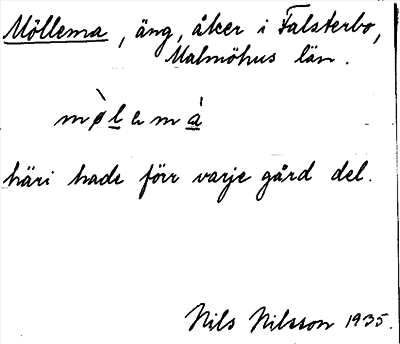 Möllema, äng, åker i Falsterbo,
Malmöhus län.
mø̀lemá
häri hade förr varje gård del.
Nils Nilsson 1935.